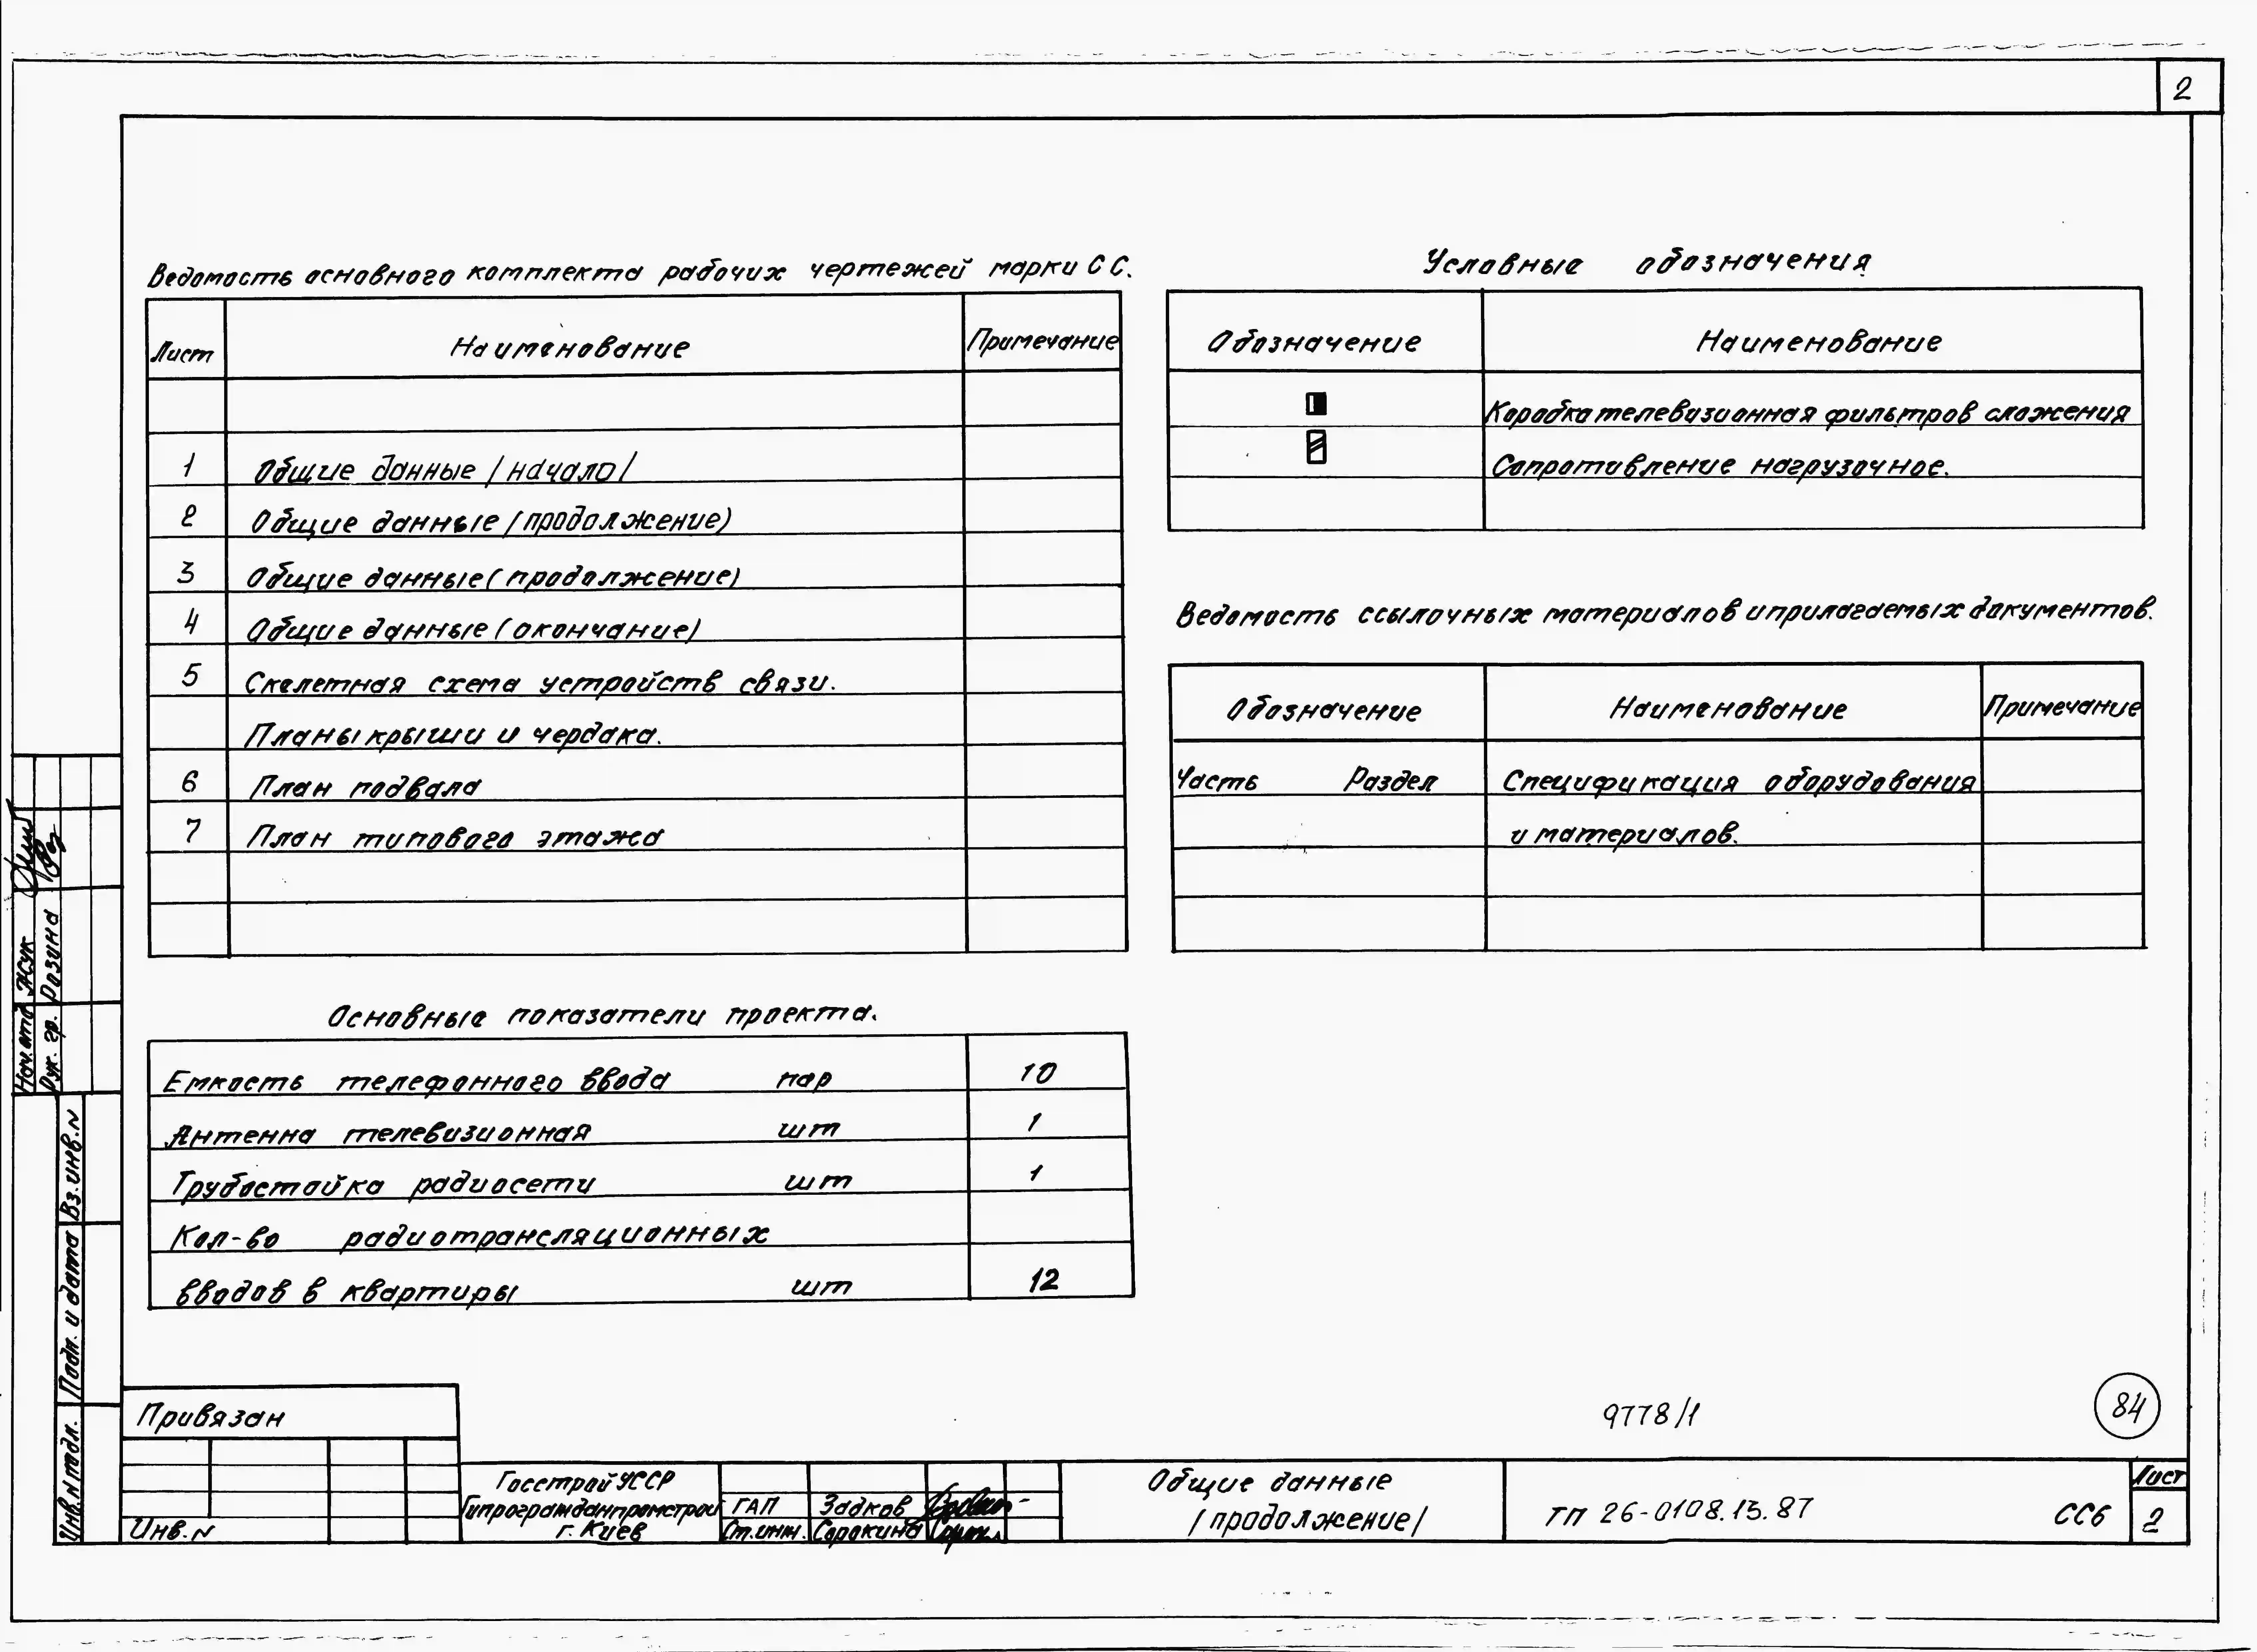 2
Ведомость основного комплекта рабочих чертежей марки СС.
Лист Наименование Примечание
1 Общие данные /начало/
2 Общие данные /продолжение)
3 Общие данные (продолжение)
4 Общие данные (окончание)
5 Скелетная схема устройств связи.
Планы крыши и чердака.
6 План подвала
7 План типового этажа
Основные показатели проекта.
Емкость телефонного ввода пар 10
Антенна телевизионная шт 1
Трубостойка радиосети шт 1
Кол-во радиотрансляционных
вводов в квартиры шт 12
Условные обозначения
Обозначение Наименование
Коробка телевизионная фильтров сложения
Сопротивление нагрузочное.
Ведомость ссылочных материалов и прилагаемых документов.
Обозначение Наименование Примечание
Часть Раздел Спецификация оборудования
и материалов.
Нач.отд Жук
Рук. гр. Розина
Вз.инв.N
Подп. и дата
Инв.N подл.
Привязан
Инв.N
9778/1
84
Госстрой УССР
Гипрогражданпромстрой
г. Киев
ГАП Задков
Ст.инж. Сорокина
Общие данные
/продолжение/
ТП 26-0108.13.87 СС6
Лист
2